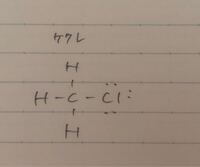 ケクレ
H
H-C-Cl:
H